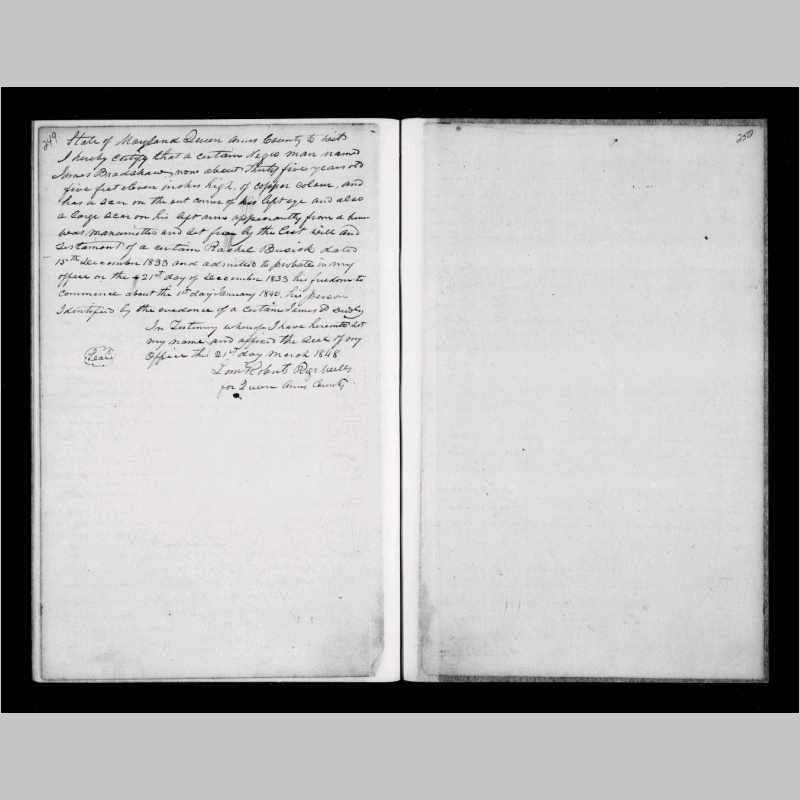 249
State of Maryland Queen Anns County to wit
I hereby certify that a certain Negro man named
James Bradshaw, now about thirty five years old
five feet eleven inches high, of copper colour, and
has a scar on the out corner of his left eye and also
a large scar on his left arm apparently from a burn
was manumitted and set free by the last will and
testament of a certain Rachel Busick dated
15th December 1833 and admitted to probate in my
office on the 21st day of December 1833 his freedom to
commence about the 1st day January 1840, his person
Identified by the evidence of a certain James
In Testimony whereof I have hereunto set
my name and affixed the seal of my
(Seal) Office this 21st day March 1848
Robert Regr Wills
for Queen Anns County
250